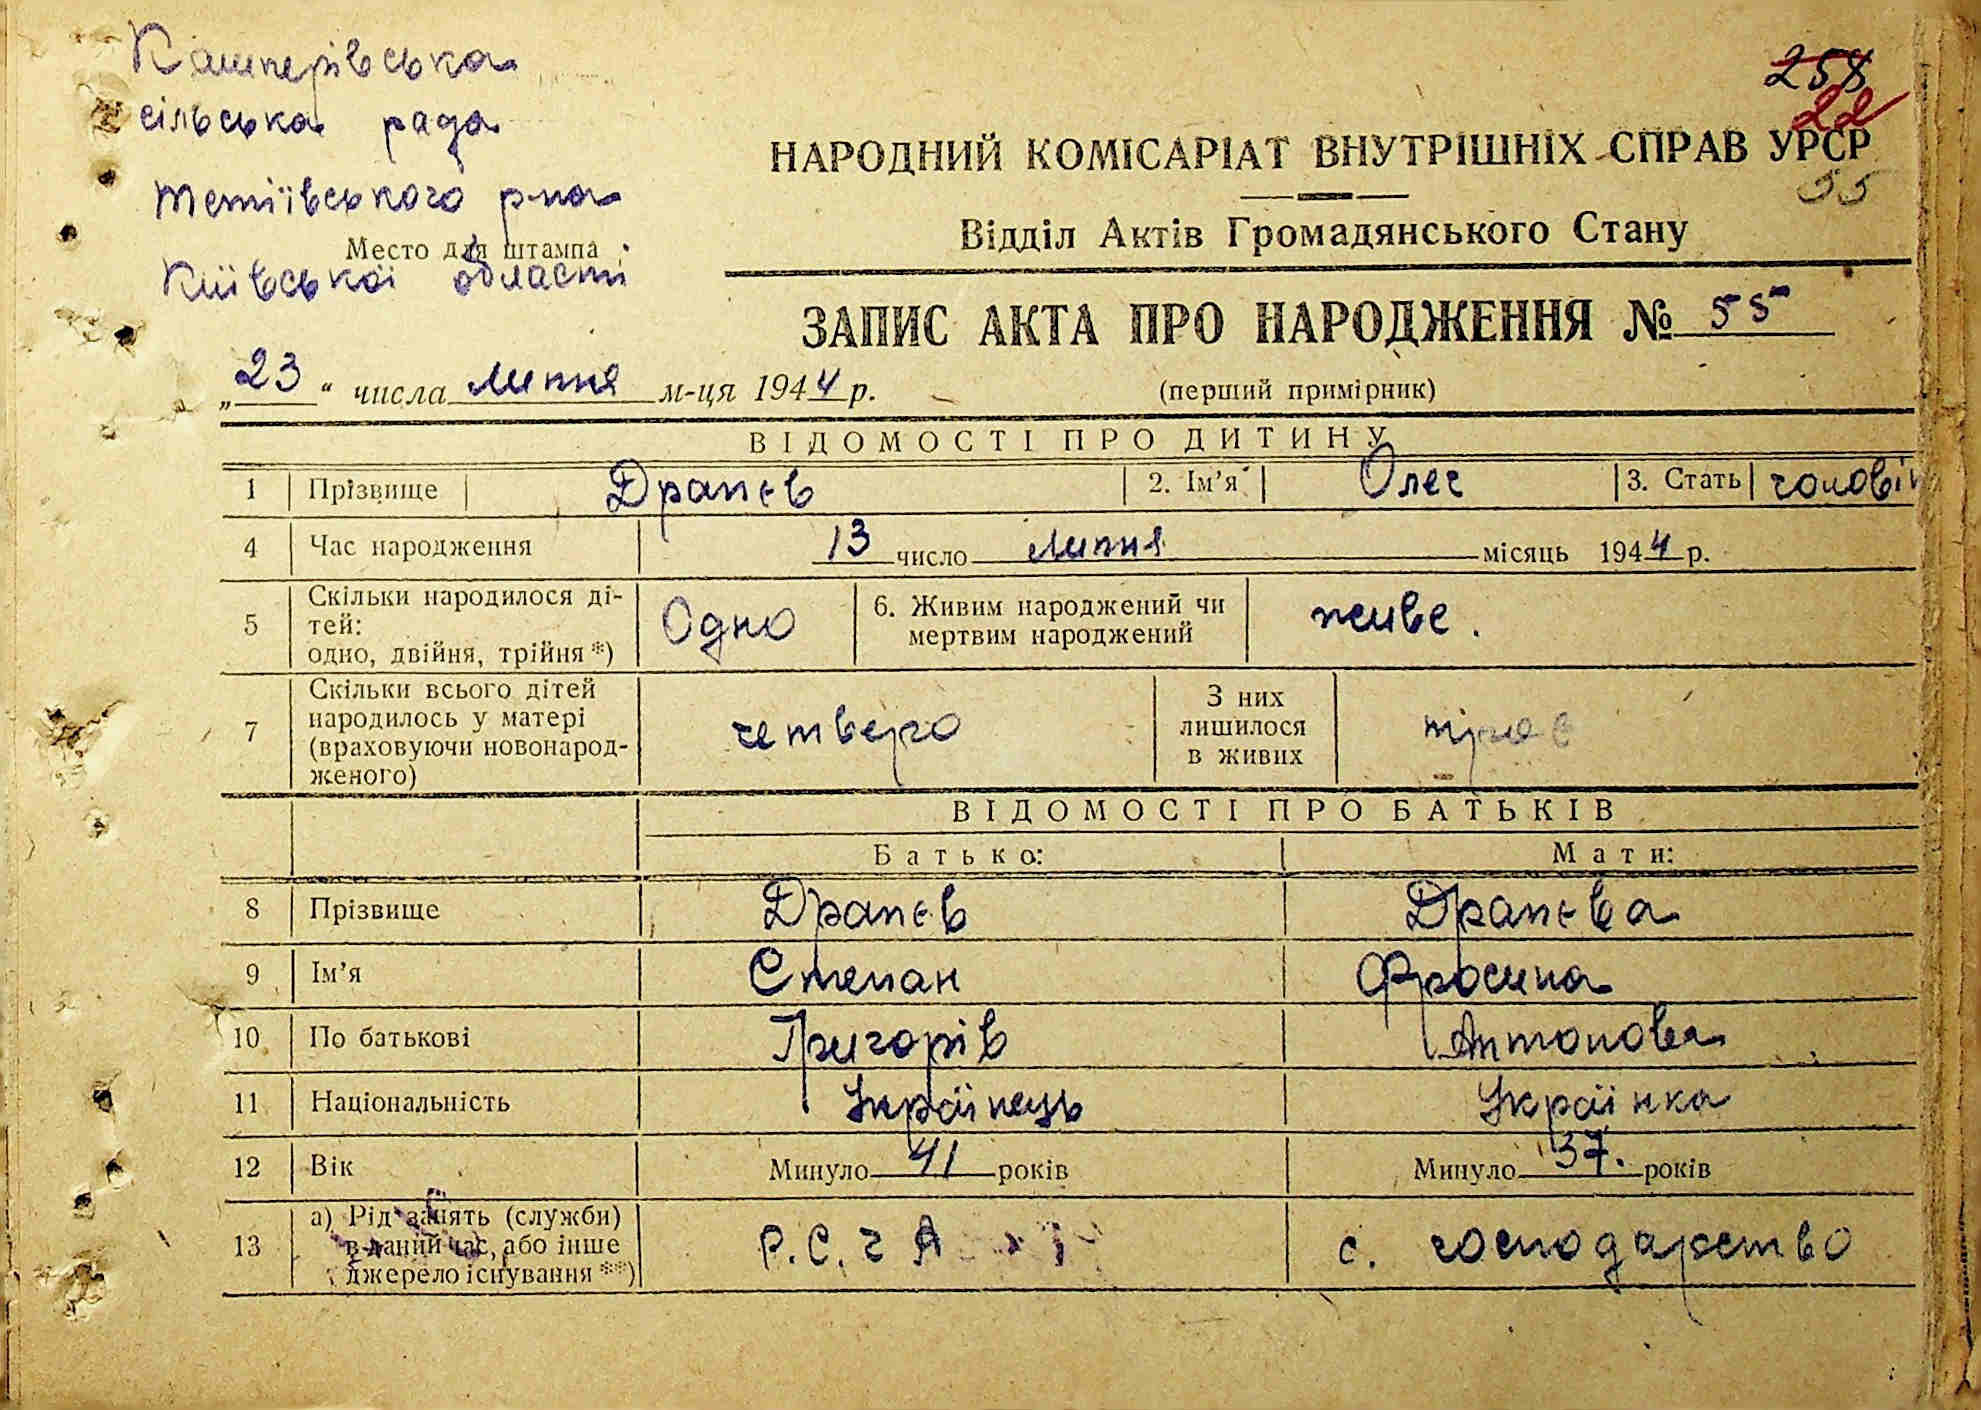 Кашперівська
сільська рада
Тетіївського р-на
Место для штампа
Київської області
258
22
55
НАРОДНИЙ КОМІСАРІАТ ВНУТРІШНІХ СПРАВ УРСР
Відділ Актів Громадянського Стану
ЗАПИС АКТА ПРО НАРОДЖЕННЯ № 55
„23“ числа липня м-ця 1944 р. (перший примірник)
ВІДОМОСТІ ПРО ДИТИНУ
1 Прізвище Драпєв 2. Ім’я Олег 3. Стать
4 Час народження 13 число липня місяць 1944 р.
5 Скільки народилося ді-
тей:
одно, двійня, трійня *) Одно 6. Живим народжений чи
мертвим народжений живе.
7 Скільки всього дітей
народилось у матері
(враховуючи новонарод-
женого) четверо З них
лишилося
в живих
ВІДОМОСТІ ПРО БАТЬКІВ
Батько: Мати:
8 Прізвище Драпєв Драпєва
9 Ім’я Степан Фросина
10 По батькові Григорів Антонова
11 Національність Українець Українка
12 Вік Минуло 41 років Минуло 37. років
13 а) Рід занять (служби)
в даний час, або інше
джерело існування **) Р.С.Ч А с. господарство